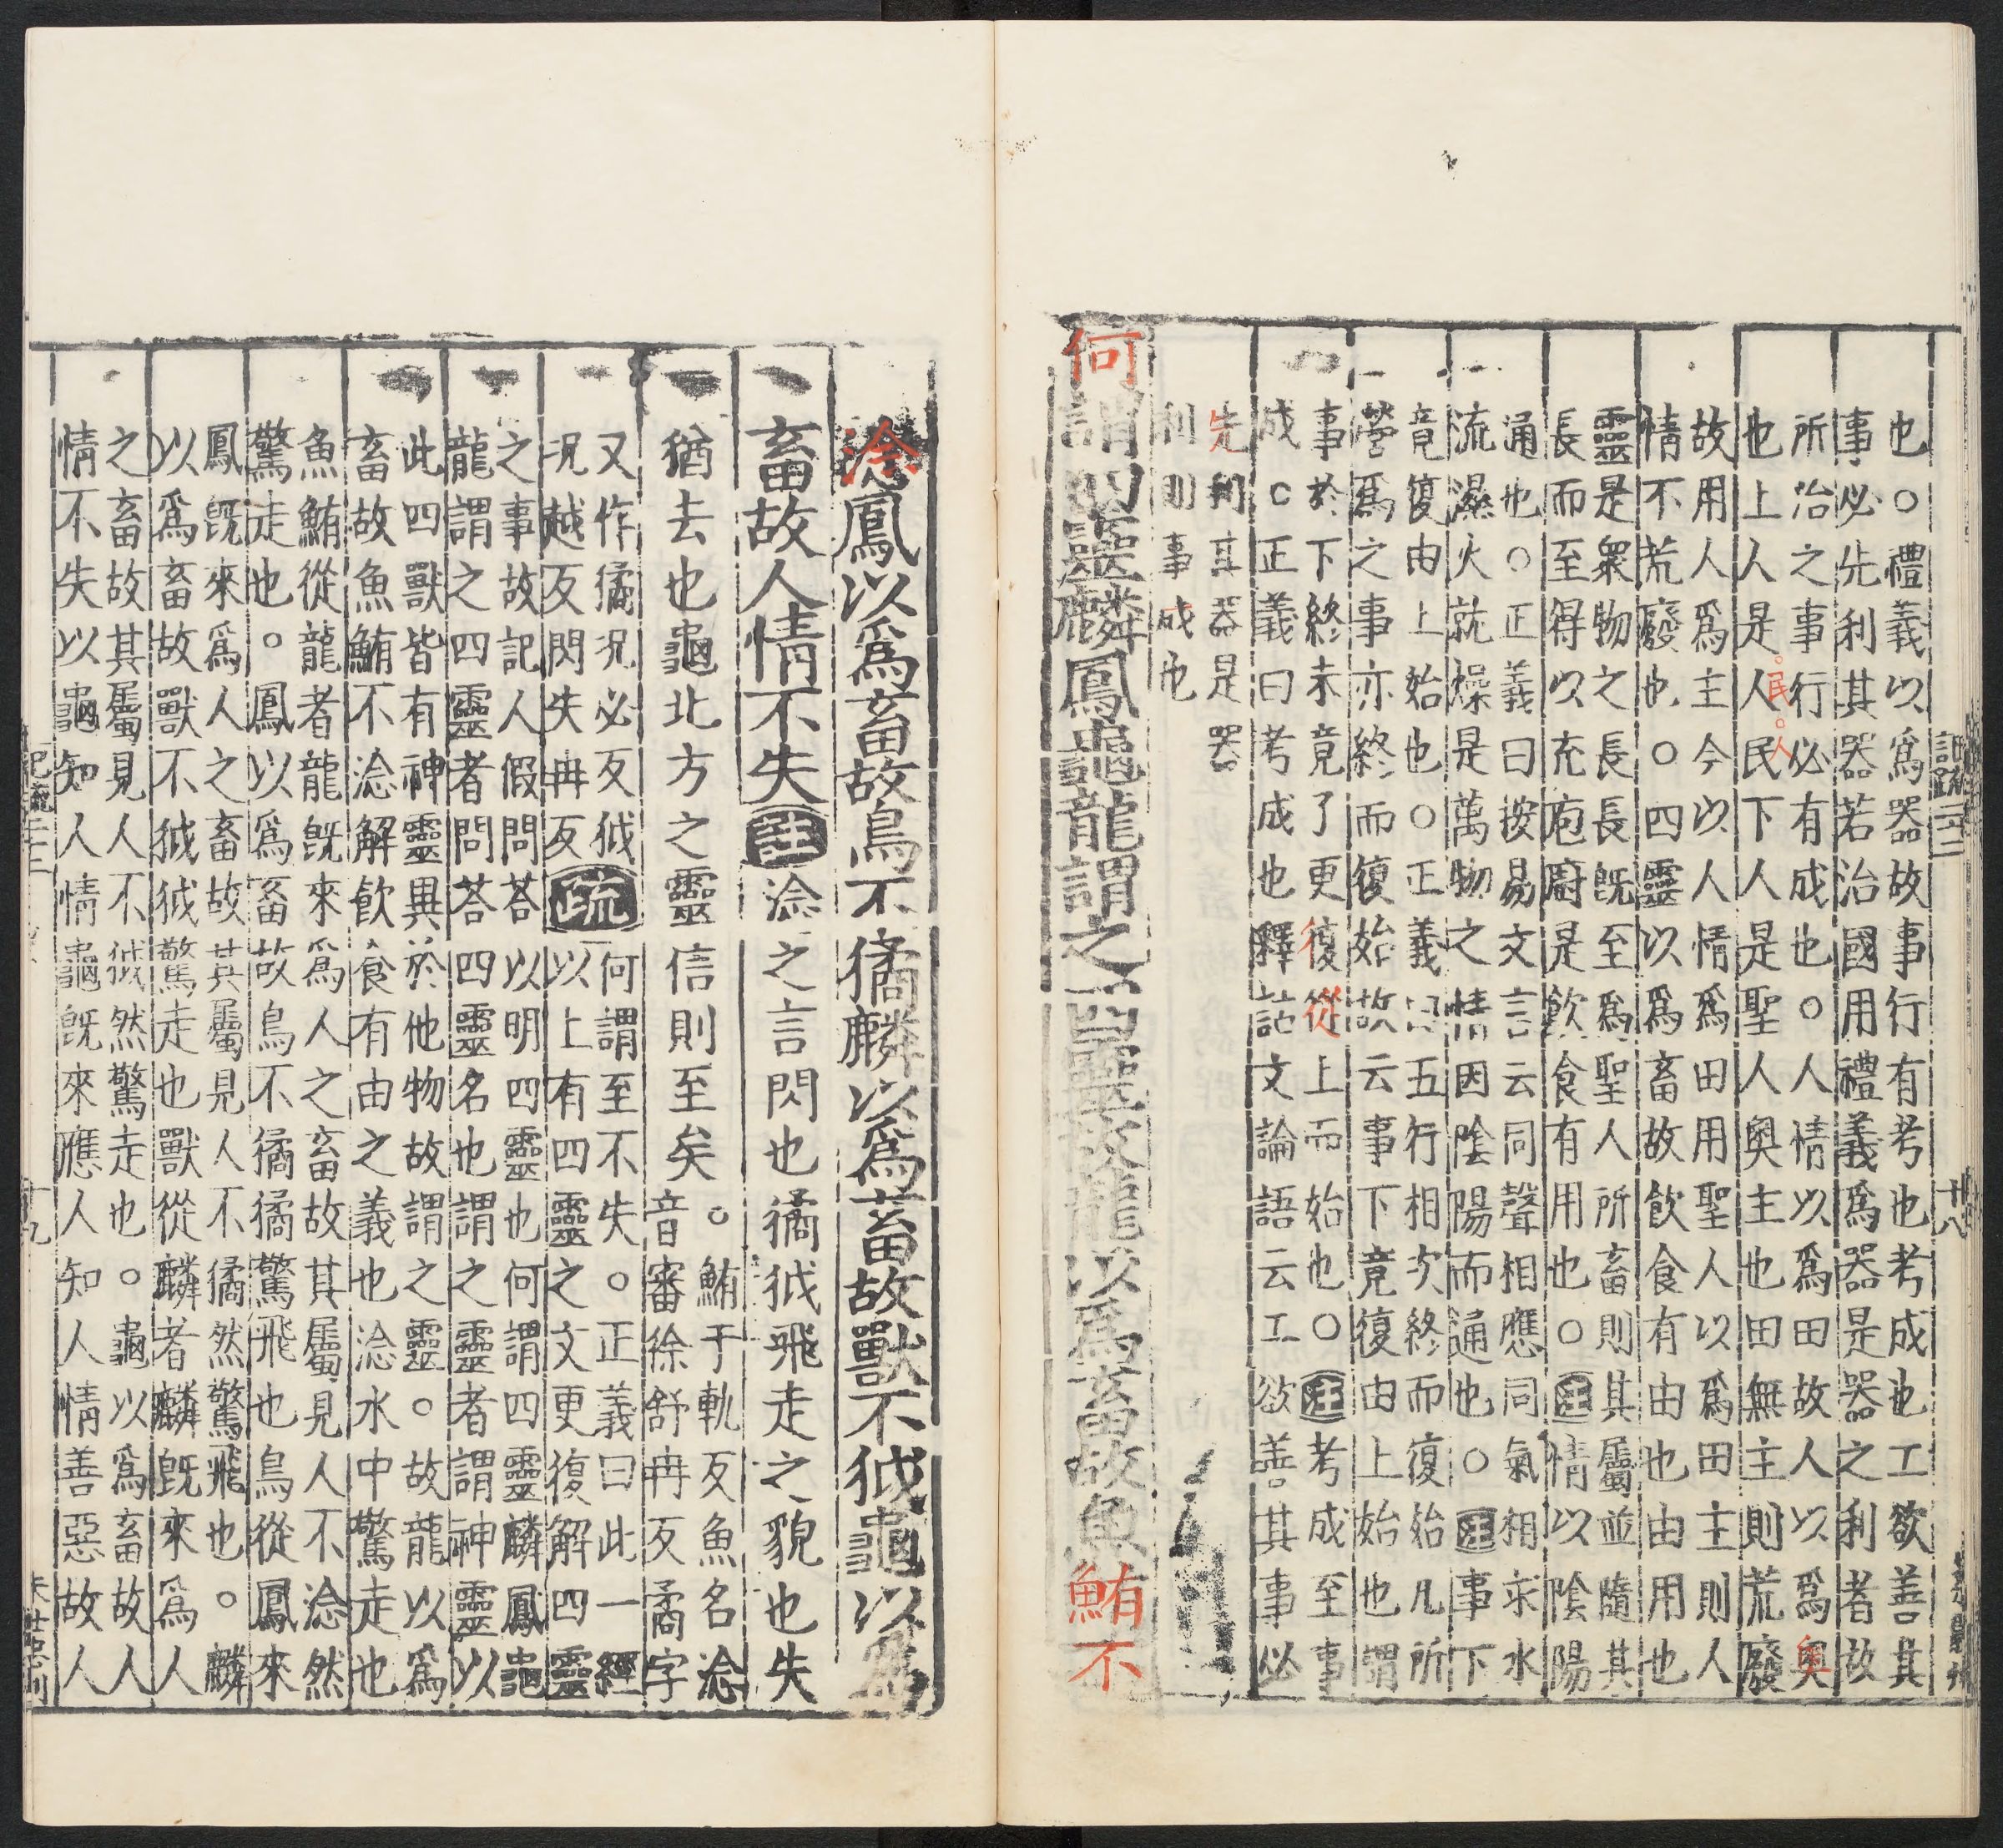 也○禮義以爲器故事行有考也考成也工欲善其
事必先利其器若治國用禮義爲器是器之利者故
所治之事行必有成也○人情以爲田故人以爲奧
也上人是人民下人是聖人奧主也田無主則荒廢
。民。人
故用人爲主今以人情爲田用聖人以爲田主則人
情不荒廢也○四靈以爲畜故飲食有由也由用也
靈是衆物之長長旣至爲聖人所畜則其屬並隨其
長而至得以充庖廚是飲食有用也○注情以陰陽
通也○正義曰按易文言云同聲相應同氣相求水
流濕火就燥是萬物之情因陰陽而通也○注事下
竟復由上始也○正義曰五行相次終而復始凡所
營爲之事亦終而復始故云事下竟復由上始也謂
事於下終未竟了更復從上而始也○注考成至事
成○正義曰考成也釋詁文論語云工欲善其事必
先利其器是器
利則事成也
何謂四靈麟鳳龜龍謂之四靈故龍以爲畜故魚鮪不
記疏二十二
十八
淰鳳以爲畜故鳥不獝麟以爲畜故獸不狘龜以爲
畜故人情不失注淰之言閃也獝狘飛走之貌也失
猶去也龜北方之靈信則至矣。鮪于軌反魚名淰
音審徐舒冉反獝字
又作獝況必反狘
況越反閃失冉反疏何謂至不失○正義曰此一經
以上有四靈之文更復解四靈
之事故記人假問荅以明四靈也何謂四靈麟鳳龜
龍謂之四靈者問荅四靈名也謂之靈者謂神靈以
此四獸皆有神靈異於他物故謂之靈○故龍以爲
畜故魚鮪不淰解飲食有由之義也淰水中驚走也
魚鮪從龍者龍旣來爲人之畜故其屬見人不淰然
驚走也○鳳以爲畜故鳥不獝獝驚飛也鳥從鳳來
鳳旣來爲人之畜故其屬見人不獝然驚飛也○麟
以爲畜故獸不狘狘驚走也獸從麟者麟旣來爲人
之畜故其屬見人不狘然驚走也○龜以爲畜故人
情不失以龜知人情龜旣來應人知人情善惡故人
记疏二十二
十九